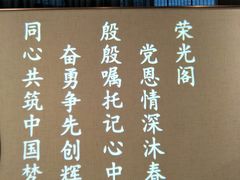 荣光阁
党恩情深沐春
殷殷嘱托记心中
奋勇争先创辉
同心共筑中国梦